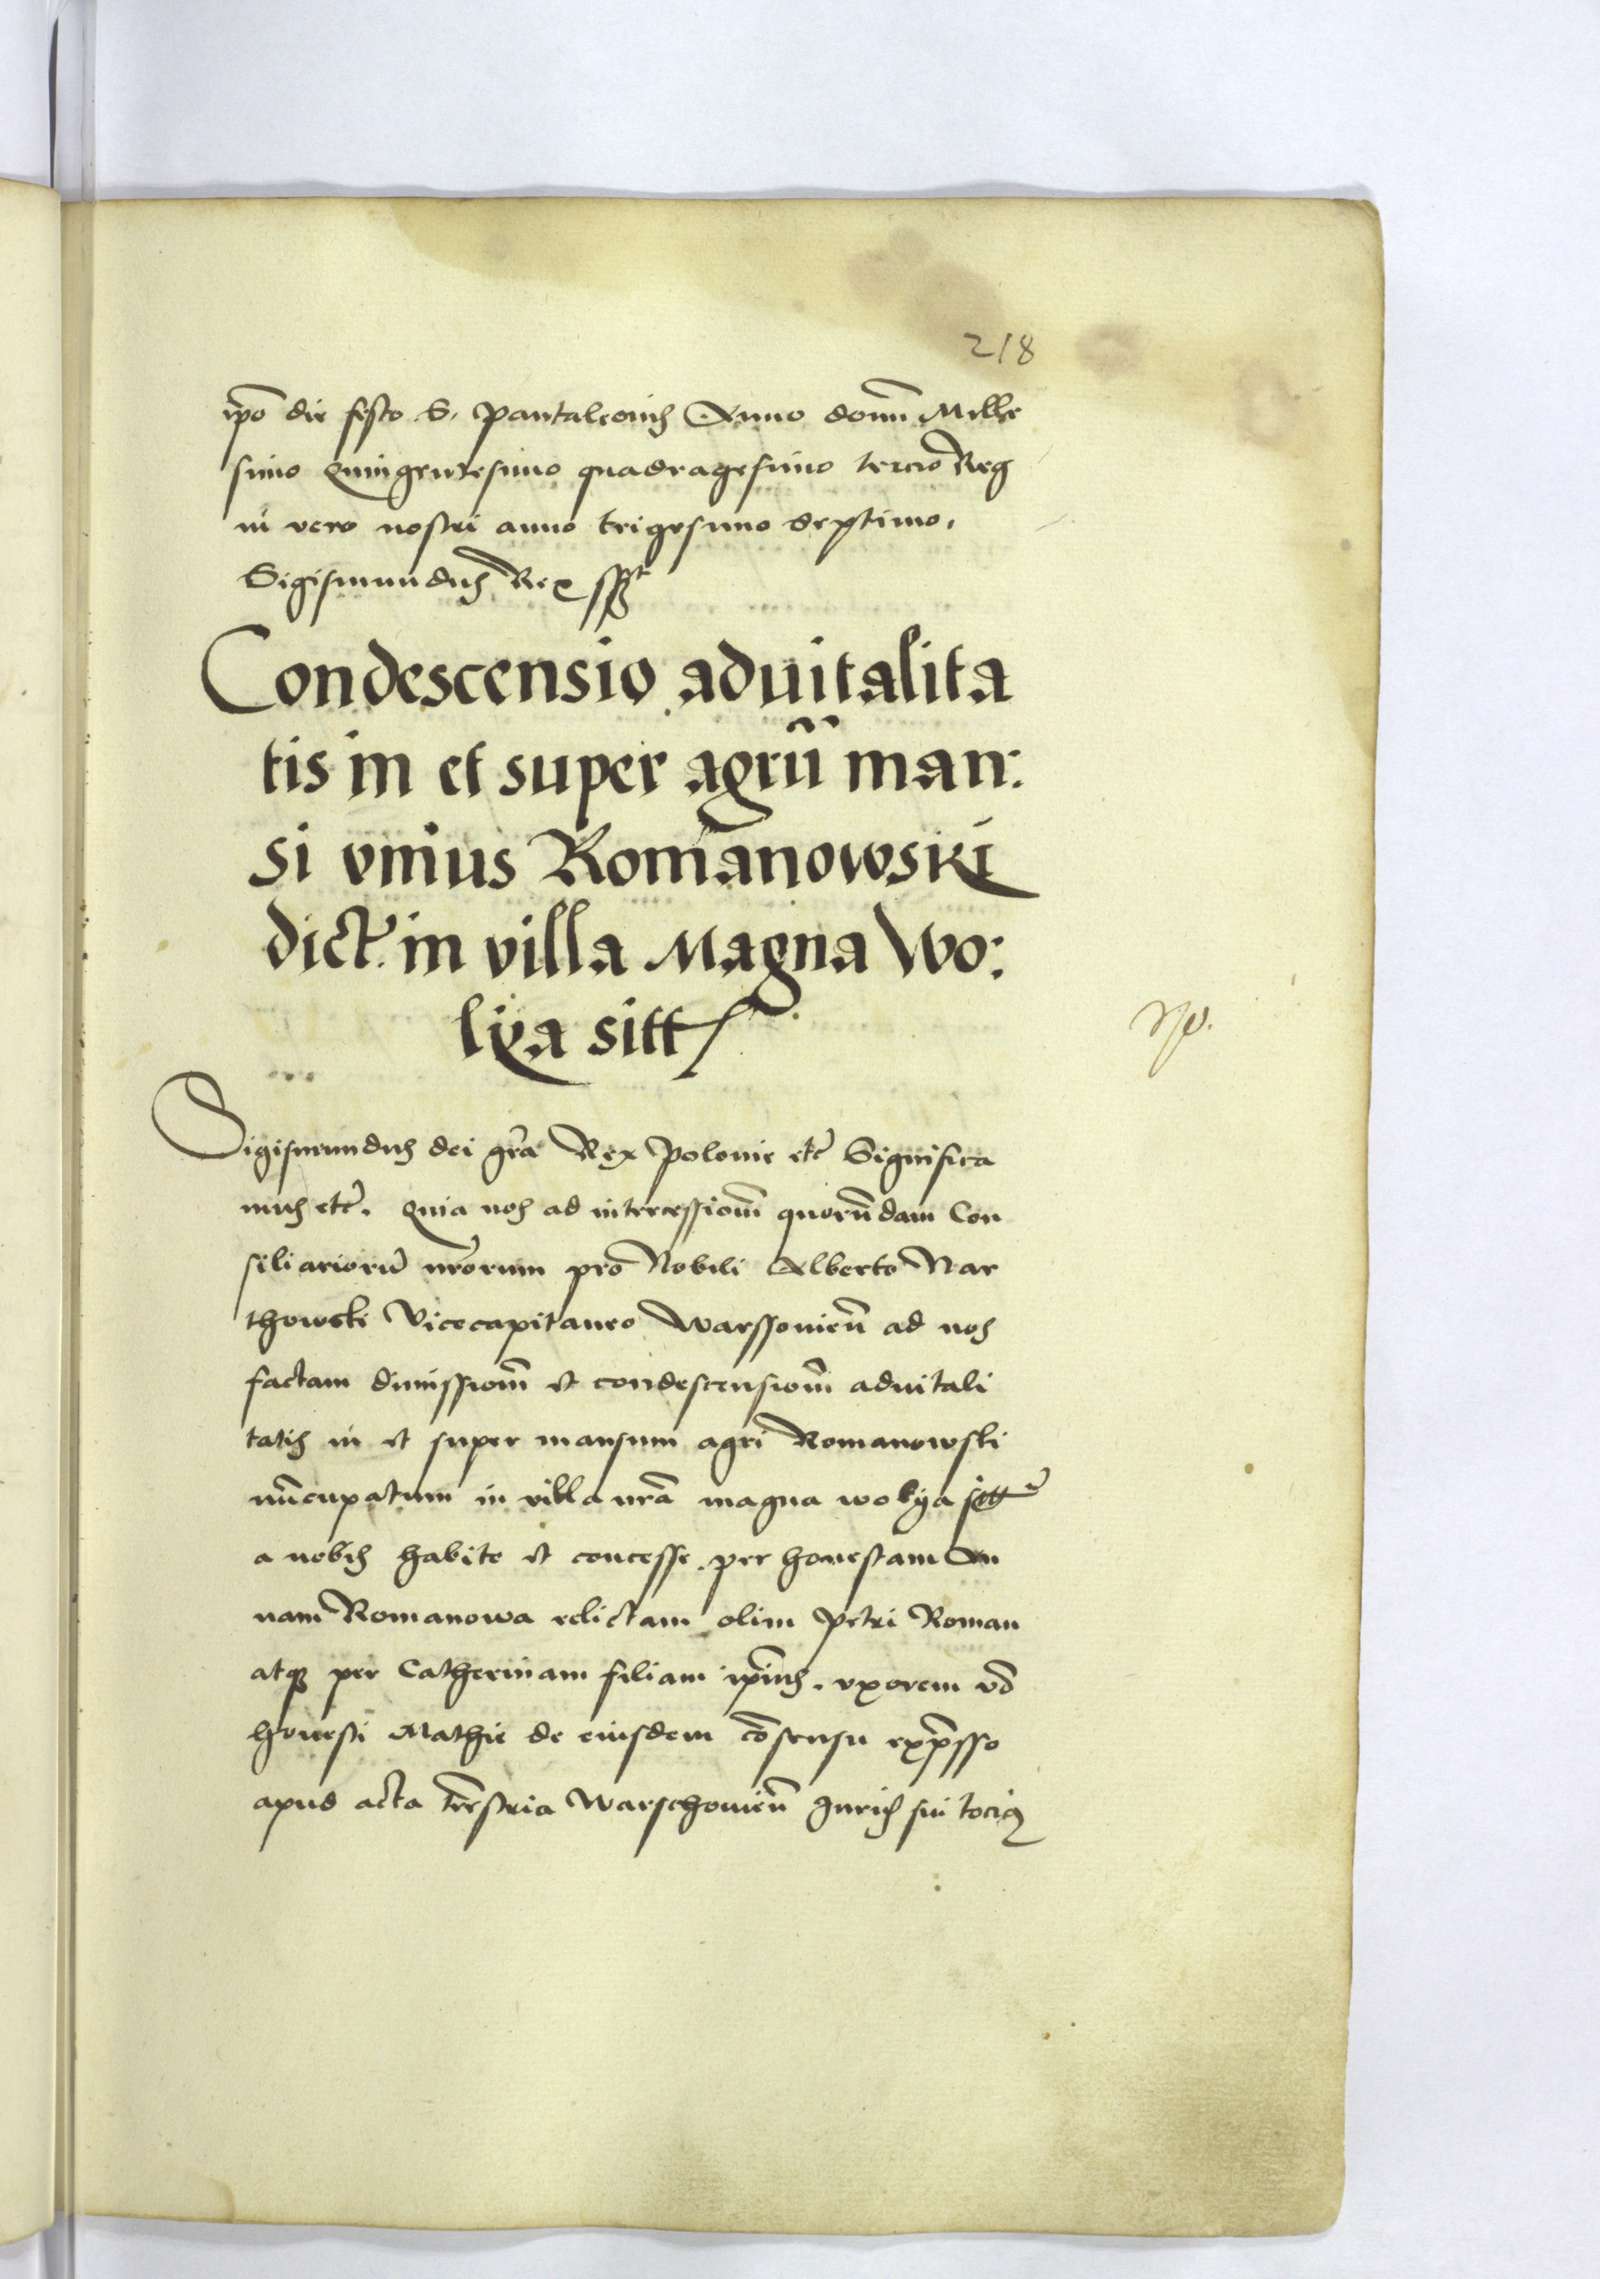 218
ip̄o die festo S. Pantaleonis Anno domī Mille
simo Quingentesimo quadragesimo tercio Reg
ni vero nostri anno trigesimo Septimo.
Sigismundus Rex sst
Condescensio advitalita
tis in et super agrū man:
si vnius Romanowski
dict. in villa Magna Wo:
lya sitt
Sigismundus dei grā Rex Polonie etc̄ Significa
mus etc̄. Quia nos ad intercessionē quorūdam Con
siliariorū nrōrum pro Nobili Alberto Nar
thowski Vicecapitaneo Warssovien̄ ad nos
factam dimissionē et condescensionē advitali
tatis in et super mansum agri Romanowski
nūcupatum in villa nrā magna wolya sitt
a nobis habite et concesse per honestam An
nam Romanowa relictam olim Petri Roman
atq3 per Catherinam filiam ip̄ius. vxorem vō
honesti Mathie de eiusdem cōsensu exp̄sso
apud acta terrēstria Warschovien̄ Juris sui tocius